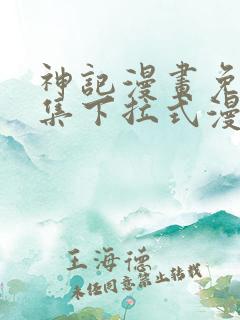 神記漫畫免
集下拉式漫
王海德
未经同意禁止转载